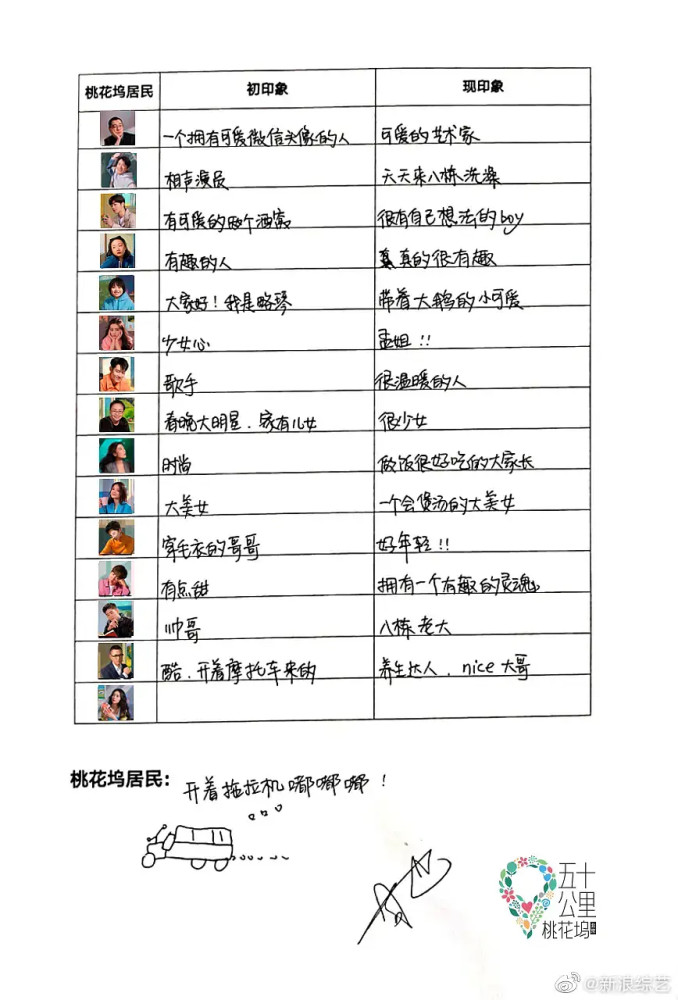 桃花坞居民 初印象 现印象
一个拥有可爱微信头像的人 可爱的艺术家
相声演员 天天来八栋洗澡
有可爱的两个酒窝 很有自己想法的boy
有趣的人 真真的很有趣
大家好!我是晗琴 带着大鹅的小可爱
少女心 孟姐!!
歌手 很温暖的人
春晚大明星.家有儿女 很少女
时尚 做饭很好吃的大家长
大美女 一个会煲汤的大美女
穿毛衣的哥哥 好年轻!!
有点甜 拥有一个有趣的灵魂
帅哥 八栋老大
酷.开着摩托车来的 养生达人.nice大哥
桃花坞居民: 开着拖拉机嘟嘟嘟!
五十
公里
桃花坞
@新浪综艺